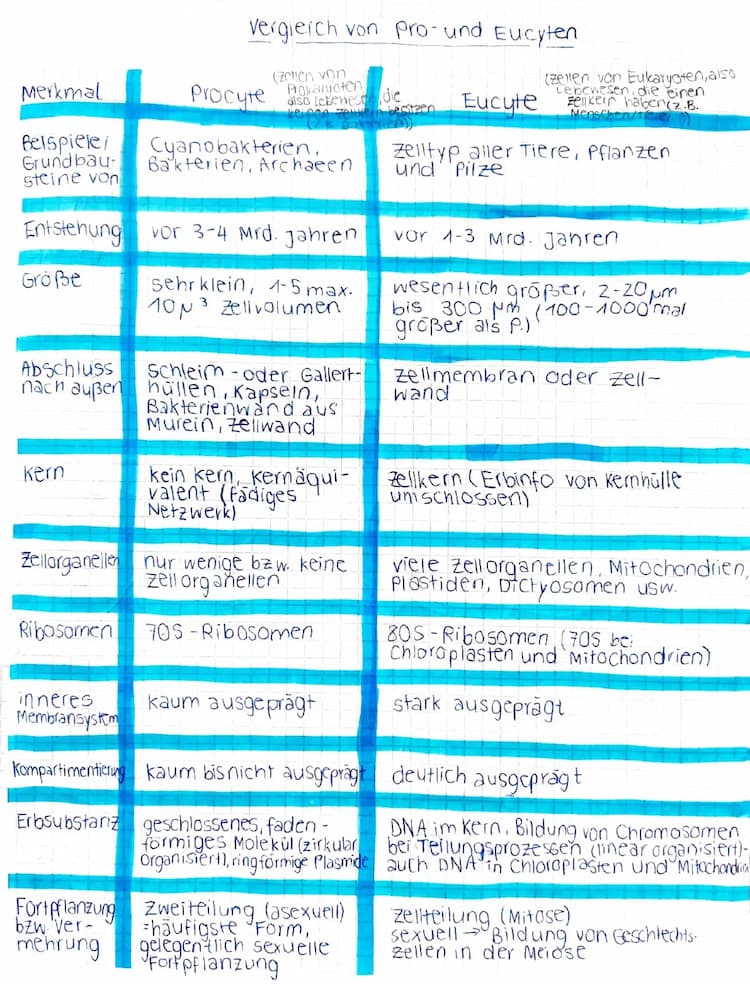 Vergleich von Pro- und Eucyten
Merkmal
Procyte
(Zellen von
Prokaryoten,
also Lebewesen, die
keinen Zellkern besitzen
Eucyte
(Zellen von Eukaryoten, also
Lebewesen, die einen
Zellkern haben (z.B.
Menschen, Tiere
Beispiele/
Grundbau-
steine von
Cyanobakterien,
Bakterien, Archaeen
Zelltyp aller Tiere, Pflanzen
und Pilze
Entstehung
vor 3-4 Mrd. Jahren
vor 1-3 Mrd. Jahren
Größe
sehr klein, 1-5 max.
10 µ³ Zellvolumen
wesentlich größer, 2-20µm
bis 300 µm (100-1000mal
größer als P.)
Abschluss
nach außen
Schleim- oder Gallert-
hüllen, Kapseln,
Bakterienwand aus
Murein, Zellwand
Zellmembran oder Zell-
wand
Kern
kein Kern, Kernäqui-
valent (fädiges
Netzwerk)
Zellkern (Erbinfo von Kernhülle
umschlossen)
Zellorganellen
nur wenige bzw. keine
Zellorganellen
viele Zellorganellen, Mitochondrien,
Plastiden, Dictyosomen usw.
Ribosomen
70S-Ribosomen
80S-Ribosomen (70S bei
Chloroplasten und Mitochondrien)
inneres
Membransystem
kaum ausgeprägt
stark ausgeprägt
Kompartimentierung
kaum bis nicht ausgeprägt
deutlich ausgeprägt
Erbsubstanz
geschlossenes, faden-
förmiges Molekül (zirkulär
organisiert), ringförmige Plasmide
DNA im Kern, Bildung von Chromosomen
bei Teilungsprozessen (linear organisiert)-
auch DNA in Chloroplasten und Mitochondrien
Fortpflanzung
bzw. Ver-
mehrung
Zweiteilung (asexuell)
=häufigste Form,
gelegentlich sexuelle
Fortpflanzung
Zellteilung (Mitose)
sexuell → Bildung von Geschlechts-
zellen in der Meiose